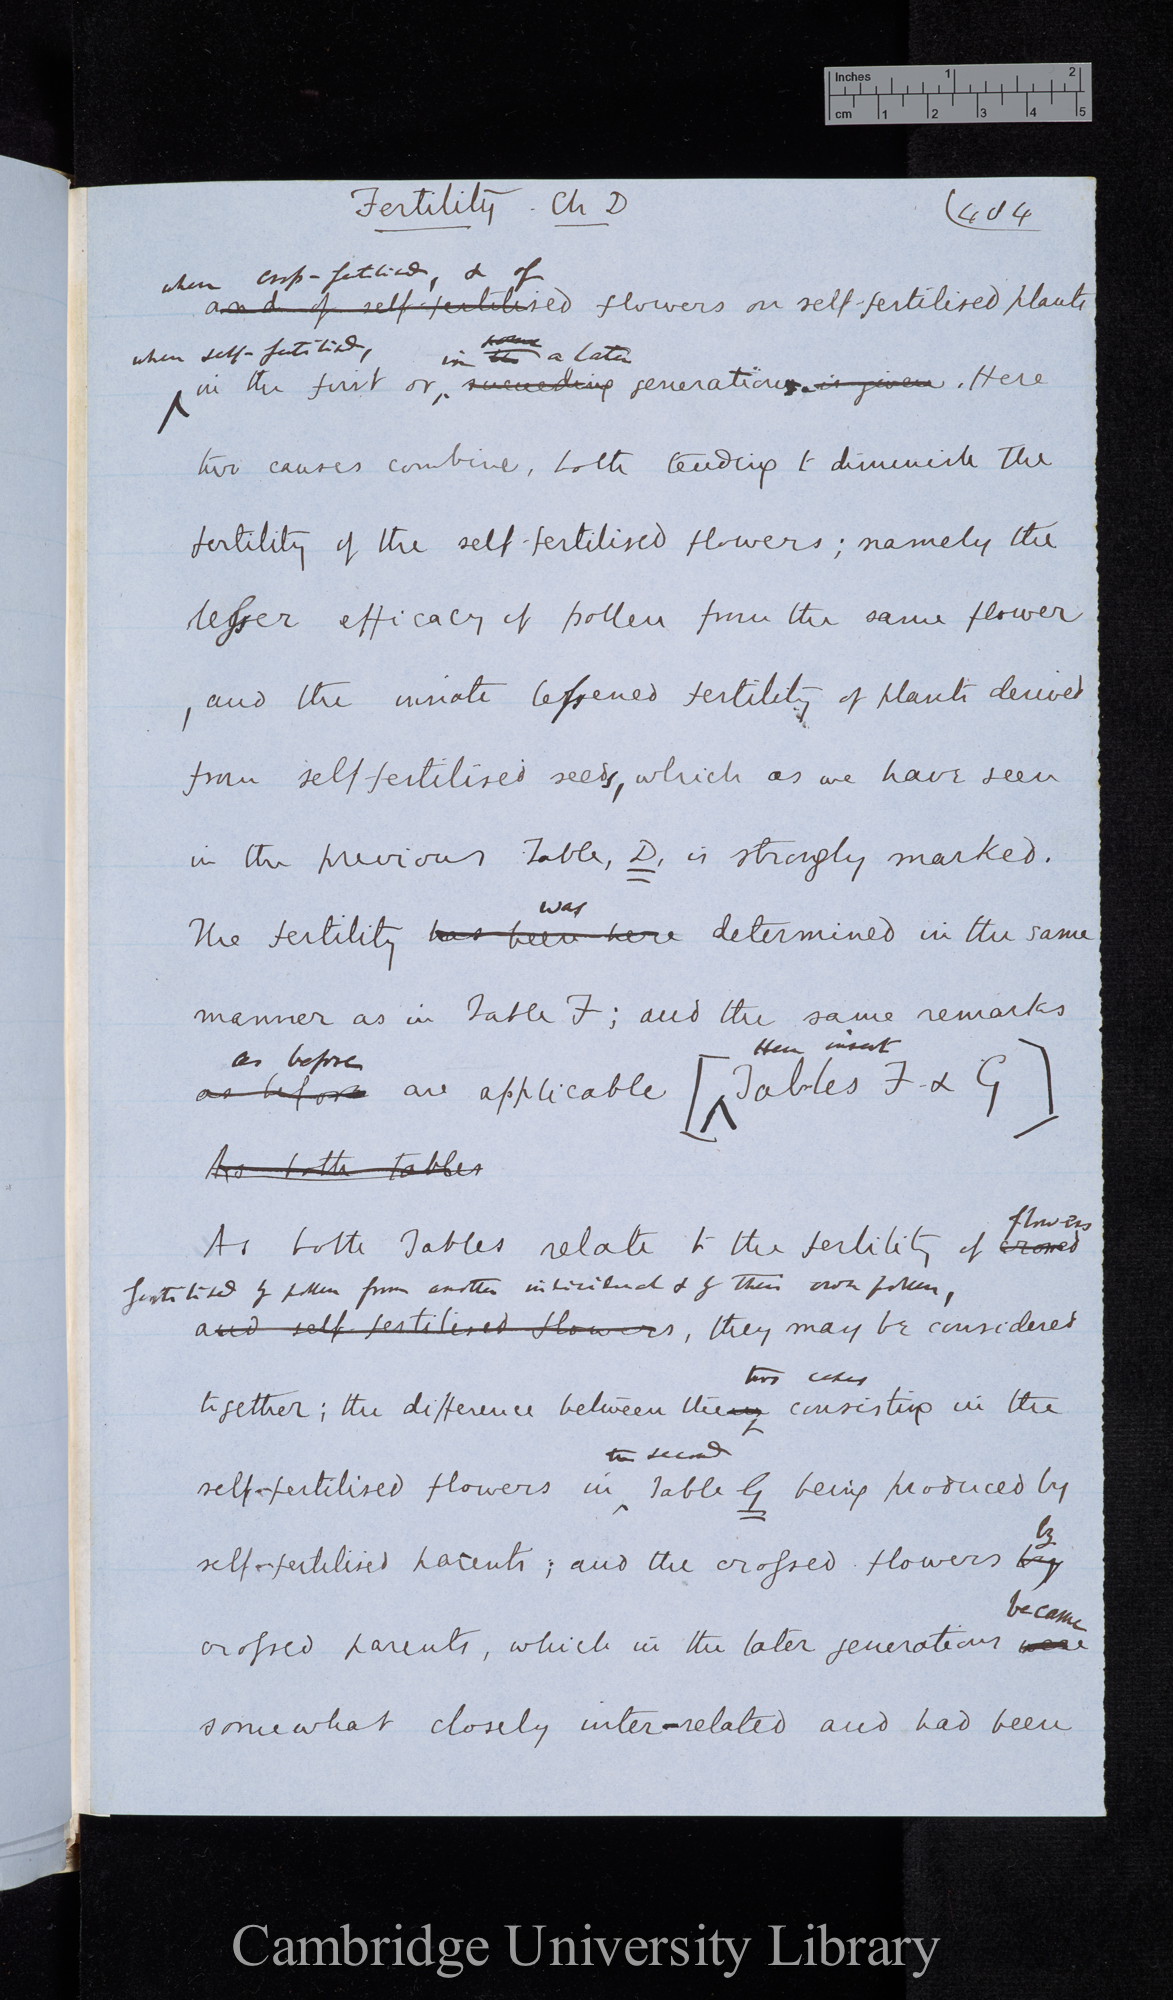 Inches 1 2
cm 1 2 3 4 5
Fertility. Ch D (404
when cross-fertilised, & of
and of self-fertilised flowers on self-fertilised plants
when self-fertilised, in some the a later
in the first or, succeeding generations is given. Here
two causes combine, both tending to diminish the
fertility of the self-fertilised flowers; namely the
lesser efficacy of pollen from the same flower
, and the innate lessened fertility of plants derived
from self-fertilised seeds, which as we have seen
in the previous Table, D, is strongly marked.
was
The fertility has been here determined in the same
manner as in Table F; and the same remarks
as before Here insert
as before are applicable [Tables F & G]
As both tables
flowers
As both Tables relate to the fertility of crossed
fertilised by pollen from another individual & by their own pollen,
and self-fertilised flowers, they may be considered
two cases
together; the difference between them consisting in the
the second
self-fertilised flowers in Table G being produced by
by
self-fertilised parents; and the crossed flowers by
became
crossed parents, which in the later generations were
somewhat closely inter-related and had been
Cambridge University Library